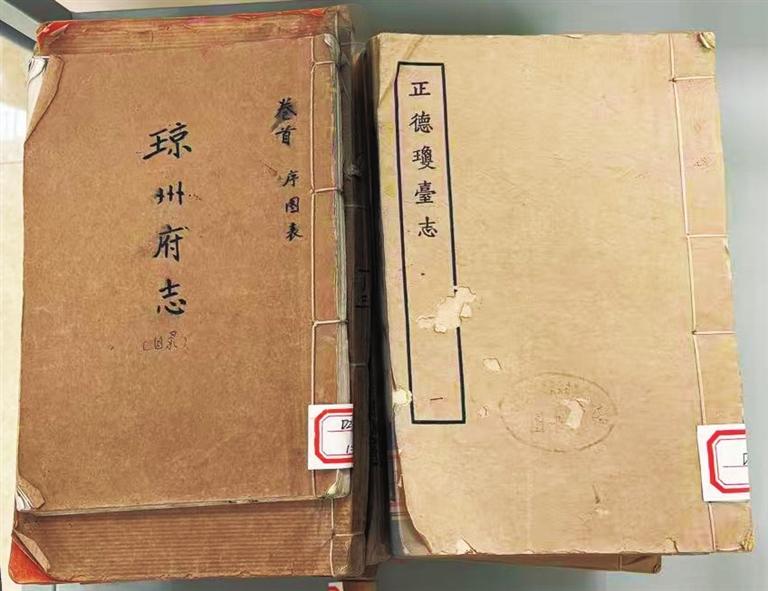 卷首 序图表
琼州府志
(目录)
正德瓊臺志
一